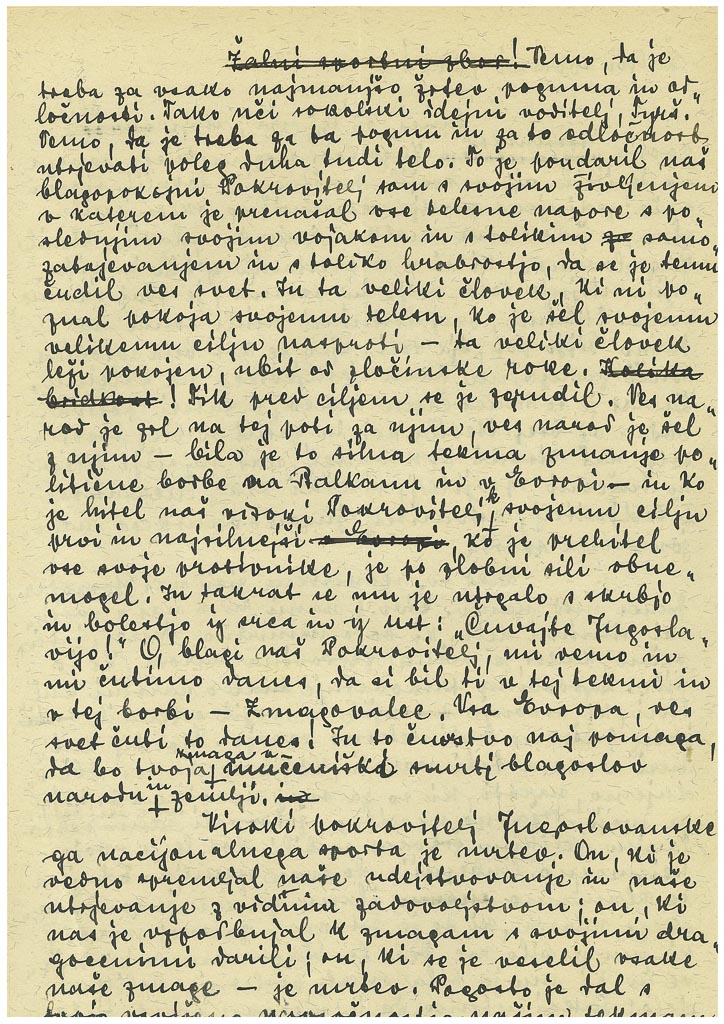 Žalni sportni zbor! Vemo, da je
treba za vsako najmanjšo žrtev poguma in od„
ločnosti. Tako uči sokolski idejni voditelj, Tyrš.
Vemo, da je treba za ta pogum in za to odločnost
utrjevati poleg duha tudi telo. To je poudaril naš
blagopokojni Pokrovitelj sam s svojim življenjem
v katerem je prenašal vse telesne napore s po„
slednjim svojim vojakom in s tolikim za samo„
zatajevanjem in s toliko hrabrostjo, da se je temu
čudil ves svet. In ta veliki človek, ki ni po„
znal pokoja svojemu telesu, ko je šel svojemu
velikemu cilju nasproti – ta veliki človek
leži pokojen, ubit od zločinske roke. Kolika
bridkost! Tik pred ciljem se je zgrudil. Ves na„
rod je zrl na tej poti za njim, ves narod je šel
z njim – bila je to silna tekma zunanje po„
litične borbe na Balkanu in v Evropi – in ko
je hitel naš visoki Pokrovitelj k svojemu cilju
prvi in najsilnejši v Evropi, ko je prehitel
vse svoje protivnike, je po zlobni sili obne„
mogel. In takrat se mu je utrgalo s skrbjo
in bolestjo iz srca in iz ust: „Čuvajte Jugosla„
vijo!" O, blagi naš Pokrovitelj, mi vemo in
mi čutimo danes, da si bil ti v tej tekmi in
v tej borbi – Zmagovalec. Vsa Evropa, ves
svet čuti to danes! In to čuvstvo naj pomaga,
da bo tvoja zmaga v mučeniški smrti blagoslov
narodu in zemlji. in
Visoki pokrovitelj Jugoslovanske
ga nacijonalnega sporta je mrtev. On, ki je
vedno spremljal naše udejstvovanje in naše
utrjevanje z vidnim zadovoljstvom; on, ki
nas je vzpodbujal k zmagam s svojimi dra„
gocenimi darili; on, ki se je veselil vsake
naše zmage – je mrtev. Pogosto je dal s
svojo navzočnostjo našim tekmam